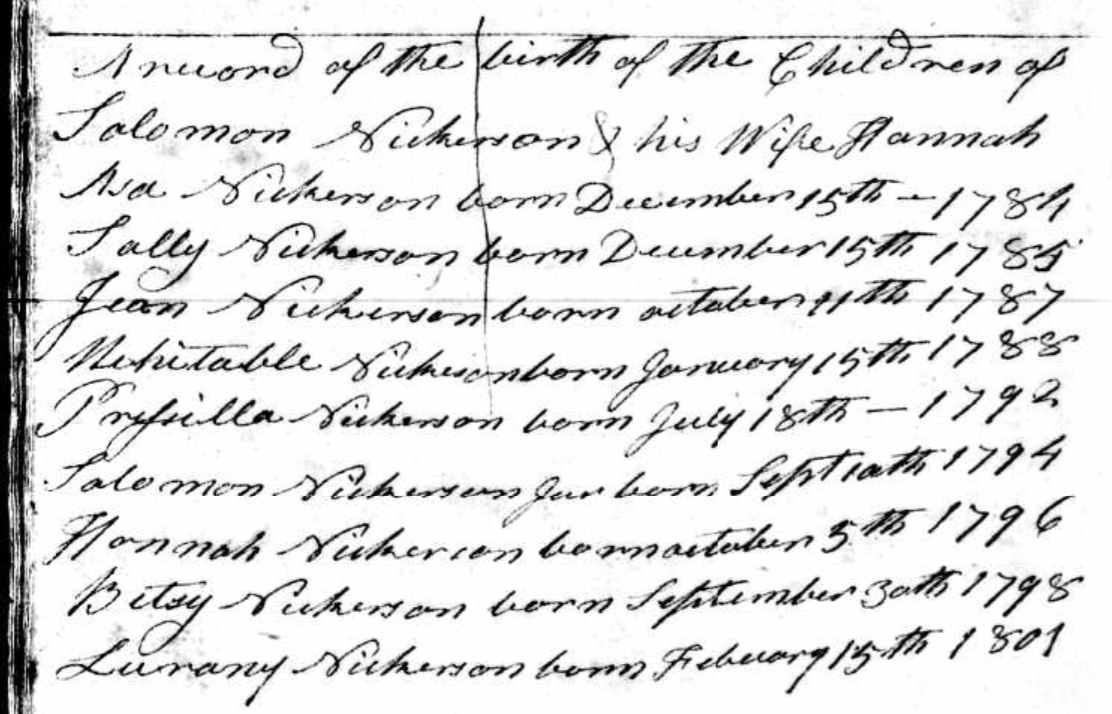 A record of the birth of the Children of
Salomon Nickerson & his Wife Hannah
Asa Nickerson born December 15th - 1784
Sally Nickerson born December 15th 1785
Jean Nickerson born october 11th 1787
Mehitable Nickerson born January 15th 1788
Prysilla Nickerson born July 18th - 1792
Salomon Nickerson Jur born Sept 10th 1794
Hannah Nickerson born october 5th 1796
Betsy Nickerson born September 30th 1798
Lurany Nickerson born Febuary 15th 1801